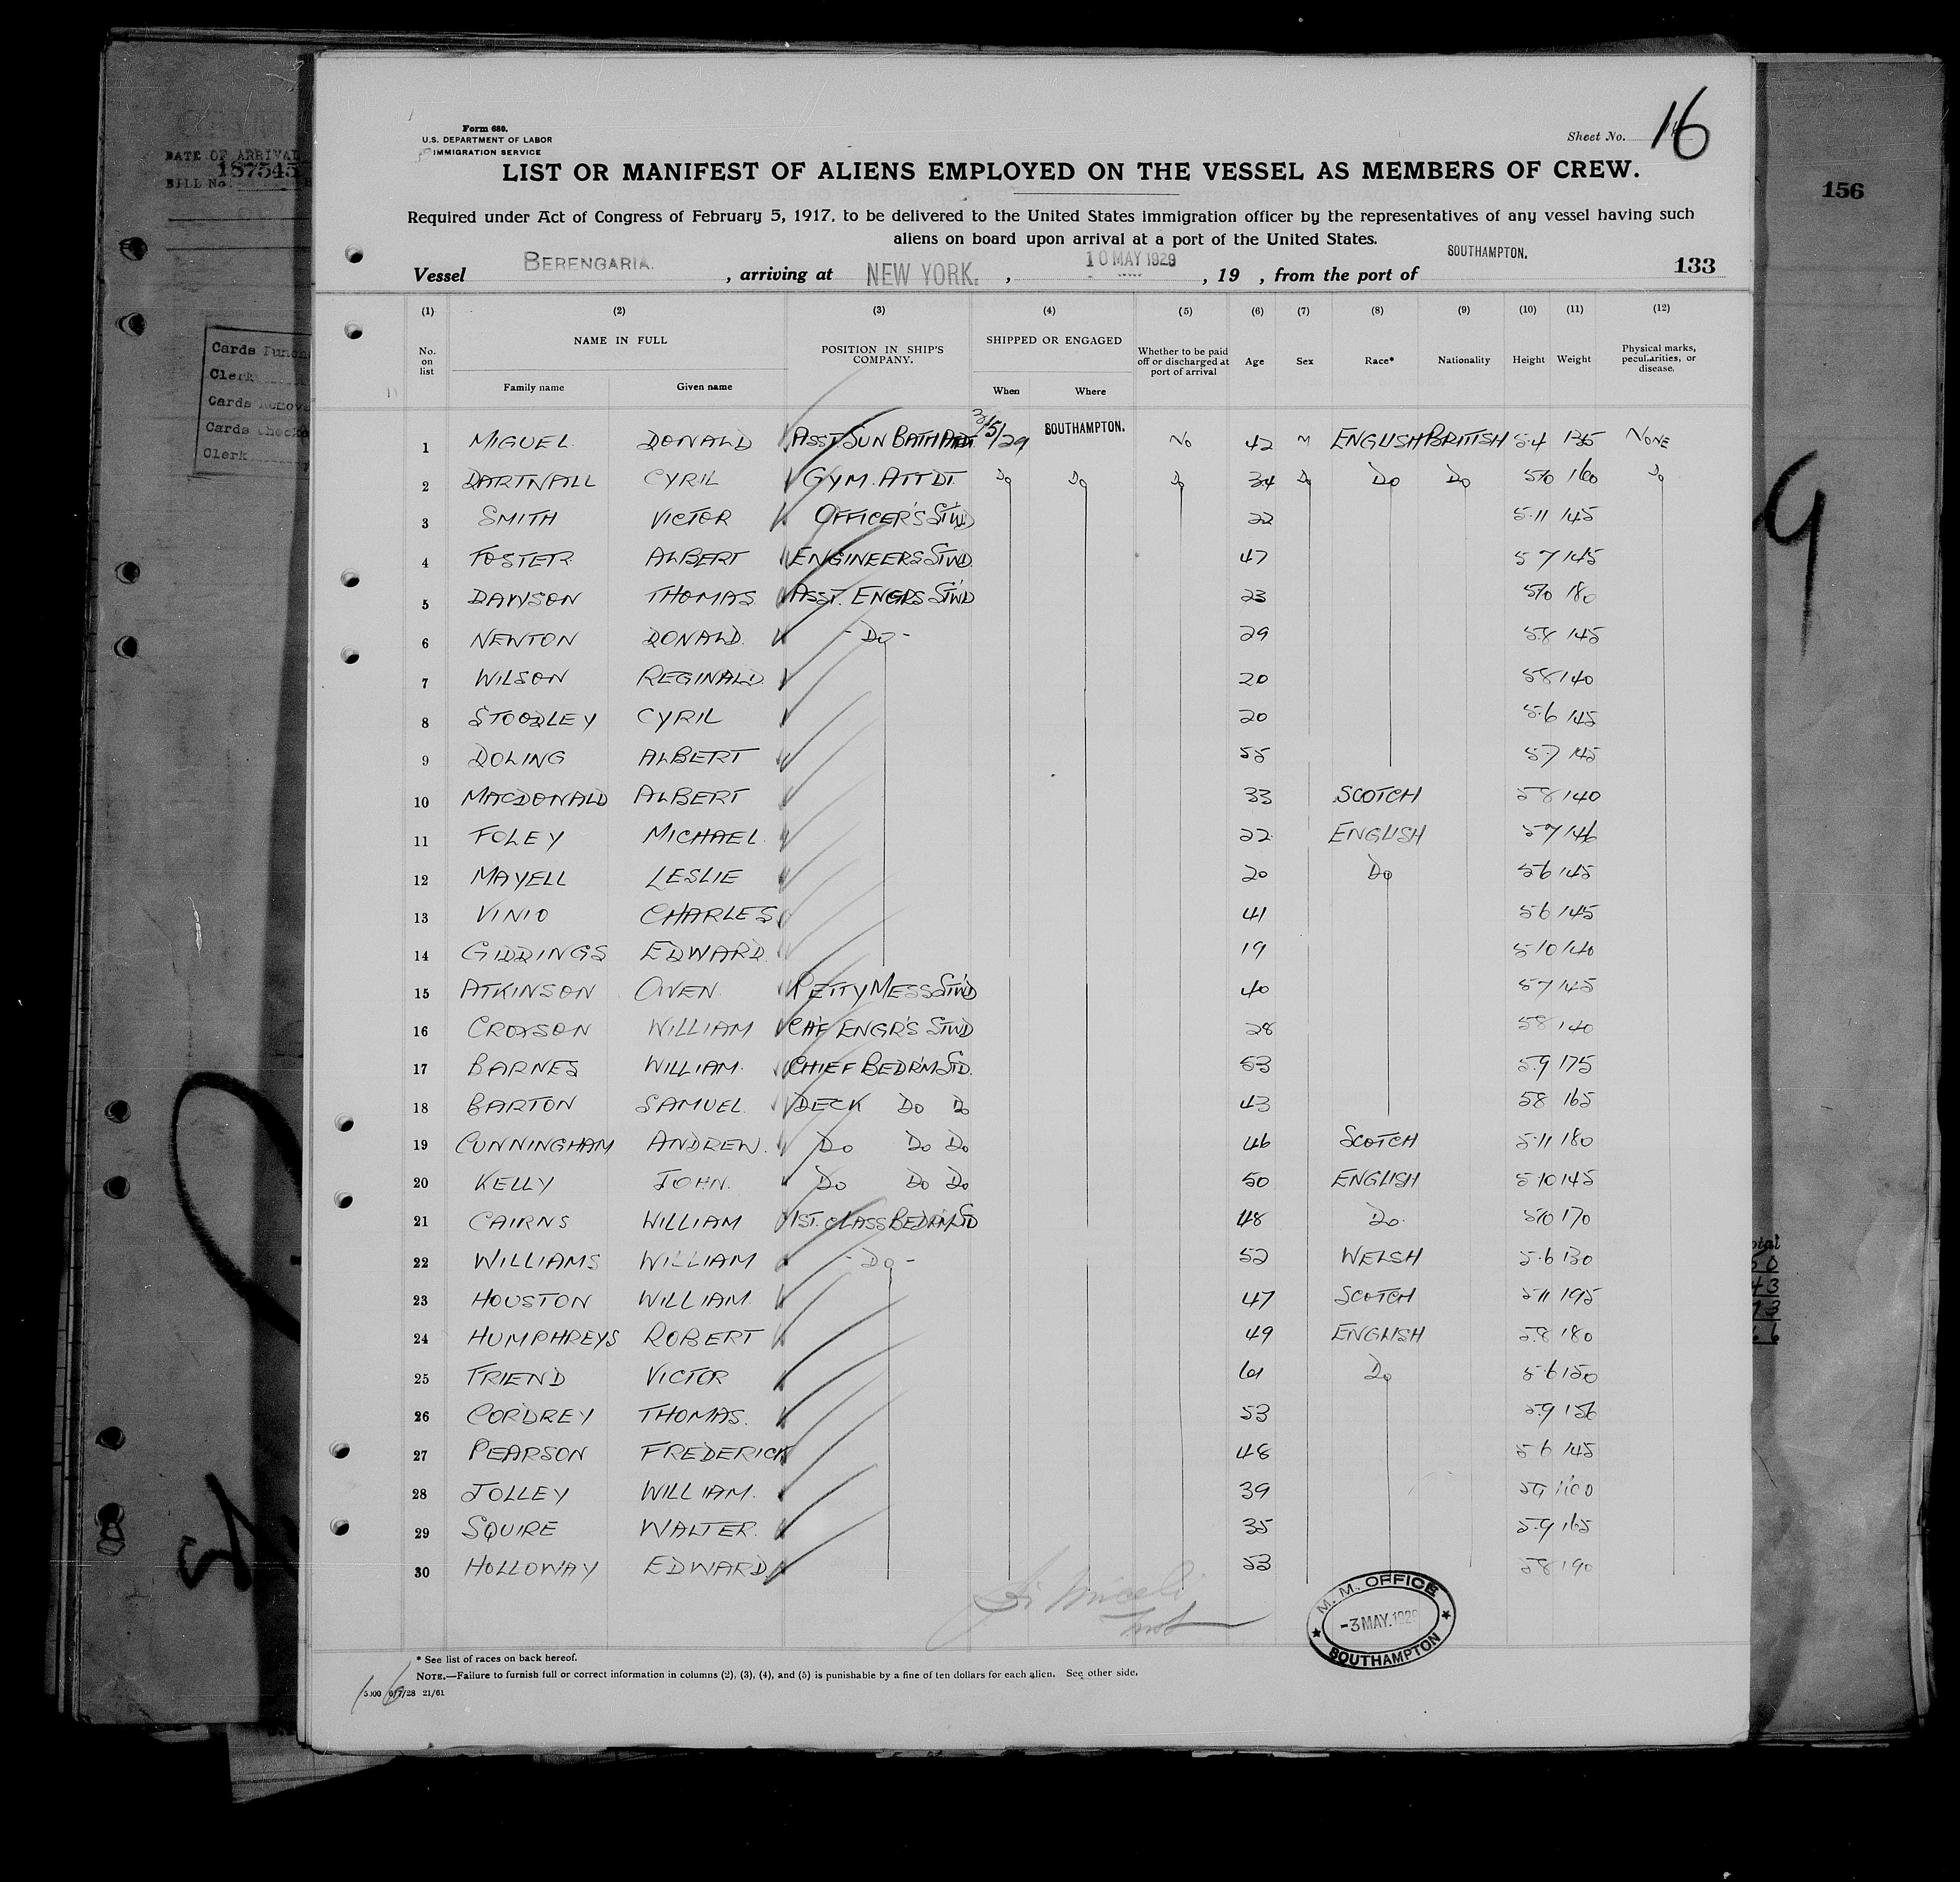 Form 680.
U.S. DEPARTMENT OF LABOR
IMMIGRATION SERVICE
Sheet No. 16
LIST OR MANIFEST OF ALIENS EMPLOYED ON THE VESSEL AS MEMBERS OF CREW.
Required under Act of Congress of February 5, 1917, to be delivered to the United States immigration officer by the representatives of any vessel having such
aliens on board upon arrival at a port of the United States.
Vessel BERENGARIA. , arriving at NEW YORK. , 10 MAY 1929 , 19 , from the port of SOUTHAMPTON. 133
(1) (2) (3) (4) (5) (6) (7) (8) (9) (10) (11) (12)
No. on list NAME IN FULL Family name Given name POSITION IN SHIP'S COMPANY. SHIPPED OR ENGAGED When Where Whether to be paid off or discharged at port of arrival Age Sex Race* Nationality Height Weight Physical marks, peculiarities, or disease.
1 MIGUEL DONALD ASST SUN BATH ATTDT 3/5/29 SOUTHAMPTON. No 42 M ENGLISH BRITISH 5.4 135 NONE
2 DARTNALL CYRIL GYM. ATTDT. Do Do Do 34 Do Do Do 5/10 160 Do
3 SMITH VICTOR OFFICER'S STWD 22 5.11 145
4 FOSTER ALBERT ENGINEERS STWD. 47 5 7 145
5 DAWSON THOMAS ASST. ENGRS STWD 23 5/10 180
6 NEWTON DONALD. - Do - 29 5.8 145
7 WILSON REGINALD. 20 5 8 140
8 STOODLEY CYRIL 20 5.6 145
9 DOLING ALBERT 55 5.7 145
10 MACDONALD ALBERT 33 SCOTCH 5 8 140
11 FOLEY MICHAEL. 22 ENGLISH 5 7 146
12 MAYELL LESLIE 20 Do 5 6 145
13 VINIO CHARLES 41 5 6 145
14 GIDDINGS EDWARD. 19 5 10 140
15 ATKINSON OWEN. PETTY MESS STWD 40 5 7 145
16 CROXSON WILLIAM CH'F ENGR'S STWD 28 5 8 140
17 BARNES WILLIAM. CHIEF BEDRM STD. 53 5.9 175
18 BARTON SAMUEL. DECK Do Do 43 5 8 165
19 CUNNINGHAM ANDREW. Do Do Do 46 SCOTCH 5.11 180
20 KELLY JOHN. Do Do Do 50 ENGLISH 5 10 145
21 CAIRNS WILLIAM 1ST. CLASS BEDRM STD 48 Do. 5/10 170
22 WILLIAMS WILLIAM - Do - 52 WELSH 5.6 130
23 HOUSTON WILLIAM. 47 SCOTCH 5 11 195
24 HUMPHREYS ROBERT 49 ENGLISH 5.8 180
25 FRIEND VICTOR 61 Do 5.6 150
26 CORDREY THOMAS. 53 5.9 156
27 PEARSON FREDERICK 48 5 6 145
28 JOLLEY WILLIAM. 39 5 9
29 SQUIRE WALTER. 35 5.9 165
30 HOLLOWAY EDWARD 53 5 8 190
M. M. OFFICE
-3 MAY. 1929
SOUTHAMPTON
* See list of races on back hereof.
NOTE.—Failure to furnish full or correct information in columns (2), (3), (4), and (5) is punishable by a fine of ten dollars for each alien. See other side.
21/61
16
DATE OF ARRIVAL
187545
BILL No.
Cards
Clerk
Cards
Cards
Clerk
156
9